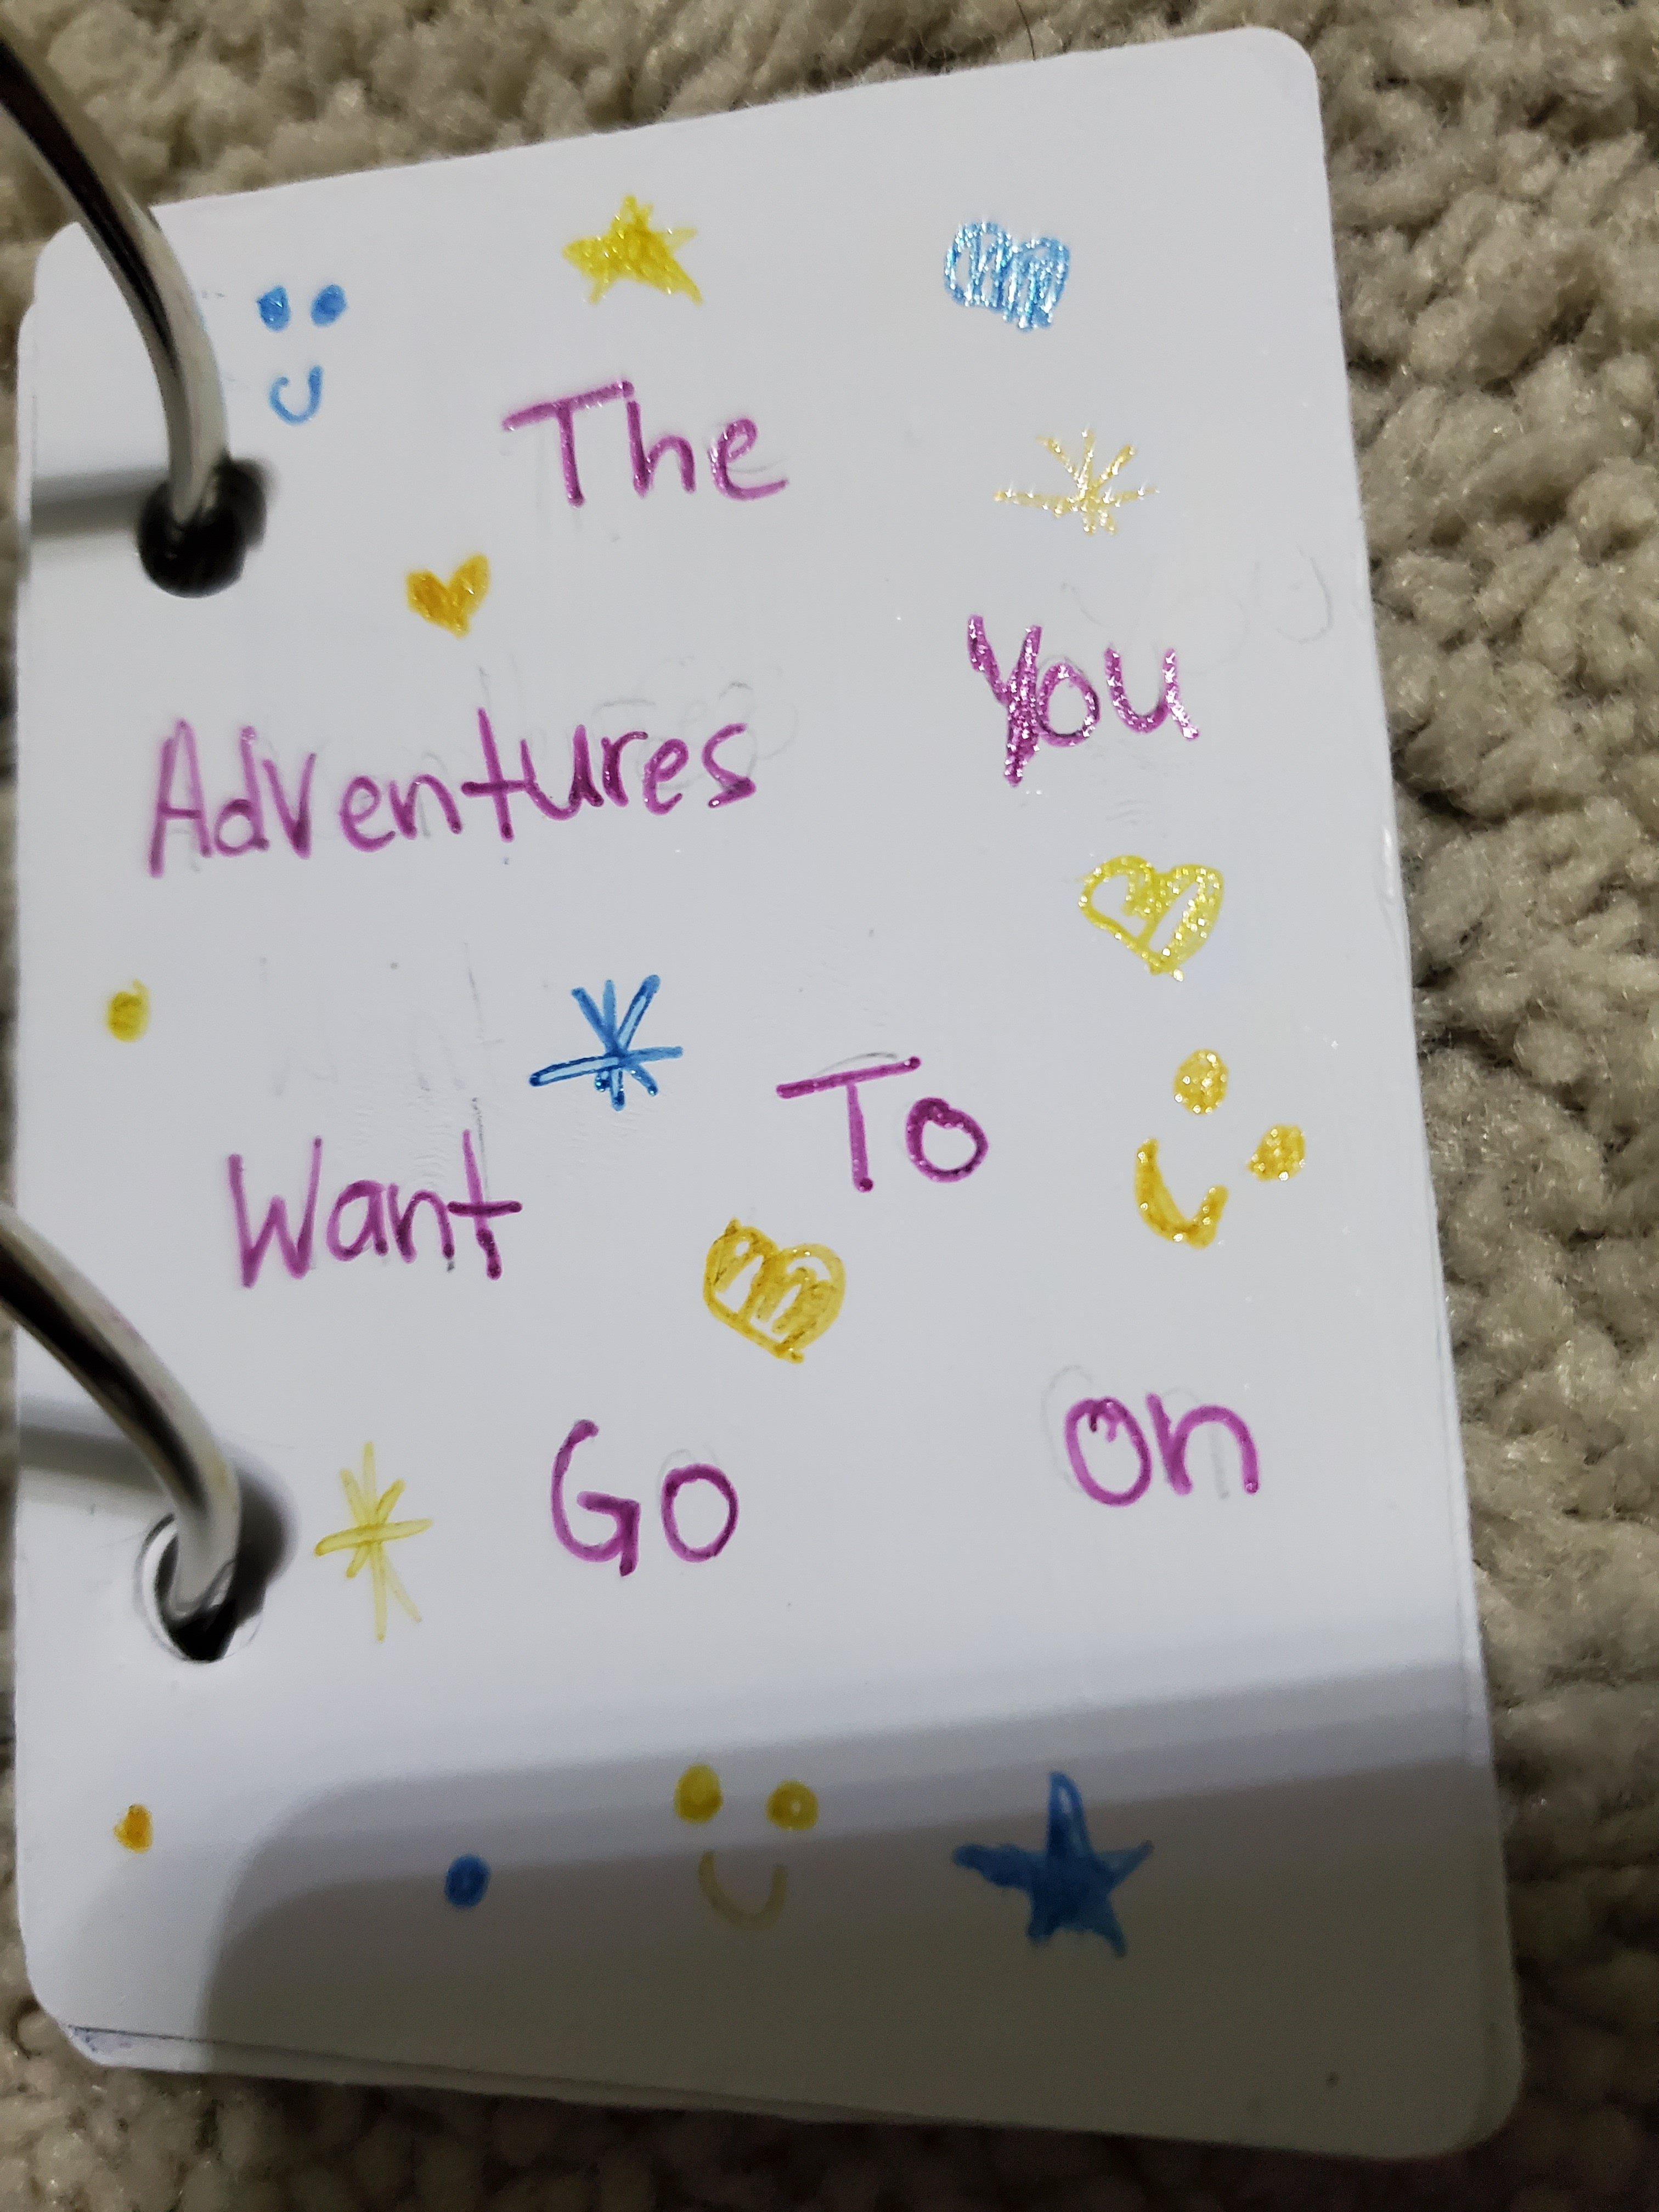 The
Adventures You
Want To
Go On